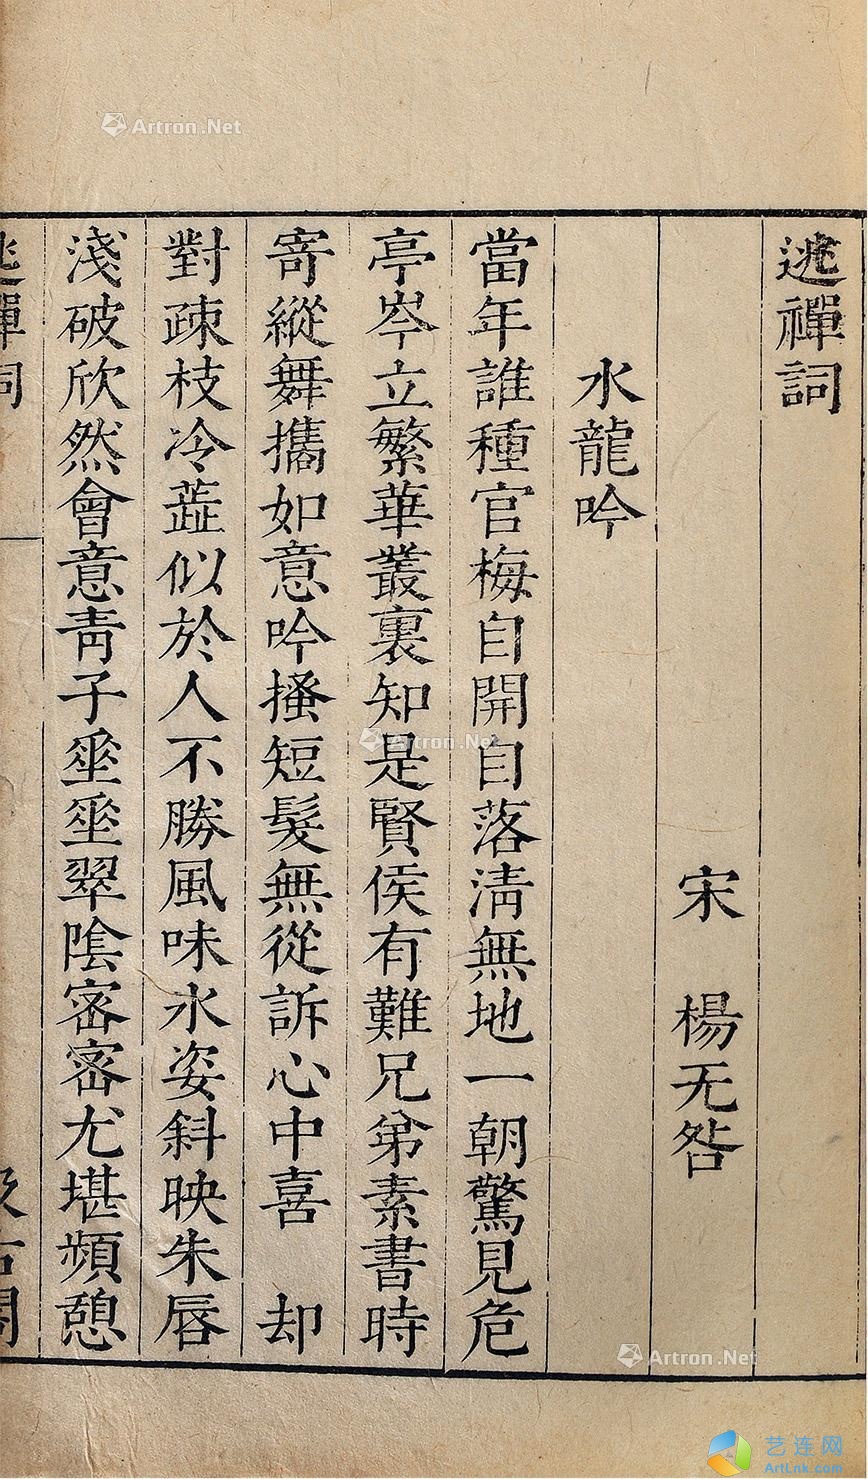 逃禪詞
宋 楊无咎
水龍吟
當年誰種官梅自開自落淸無地一朝驚見危
亭岑立繁華叢裏知是賢侯有難兄弟素書時
寄縱舞攜如意吟搔短髮無從訴心中喜 却
對疎枝冷蘂似於人不勝風味水姿斜映朱唇
淺破欣然會意靑子埀埀翠陰密密尤堪頻憩
逃禪詞
汲古閣
Artron.Net
Artron.Net
Artron.Net
艺连网
ArtLnk.com